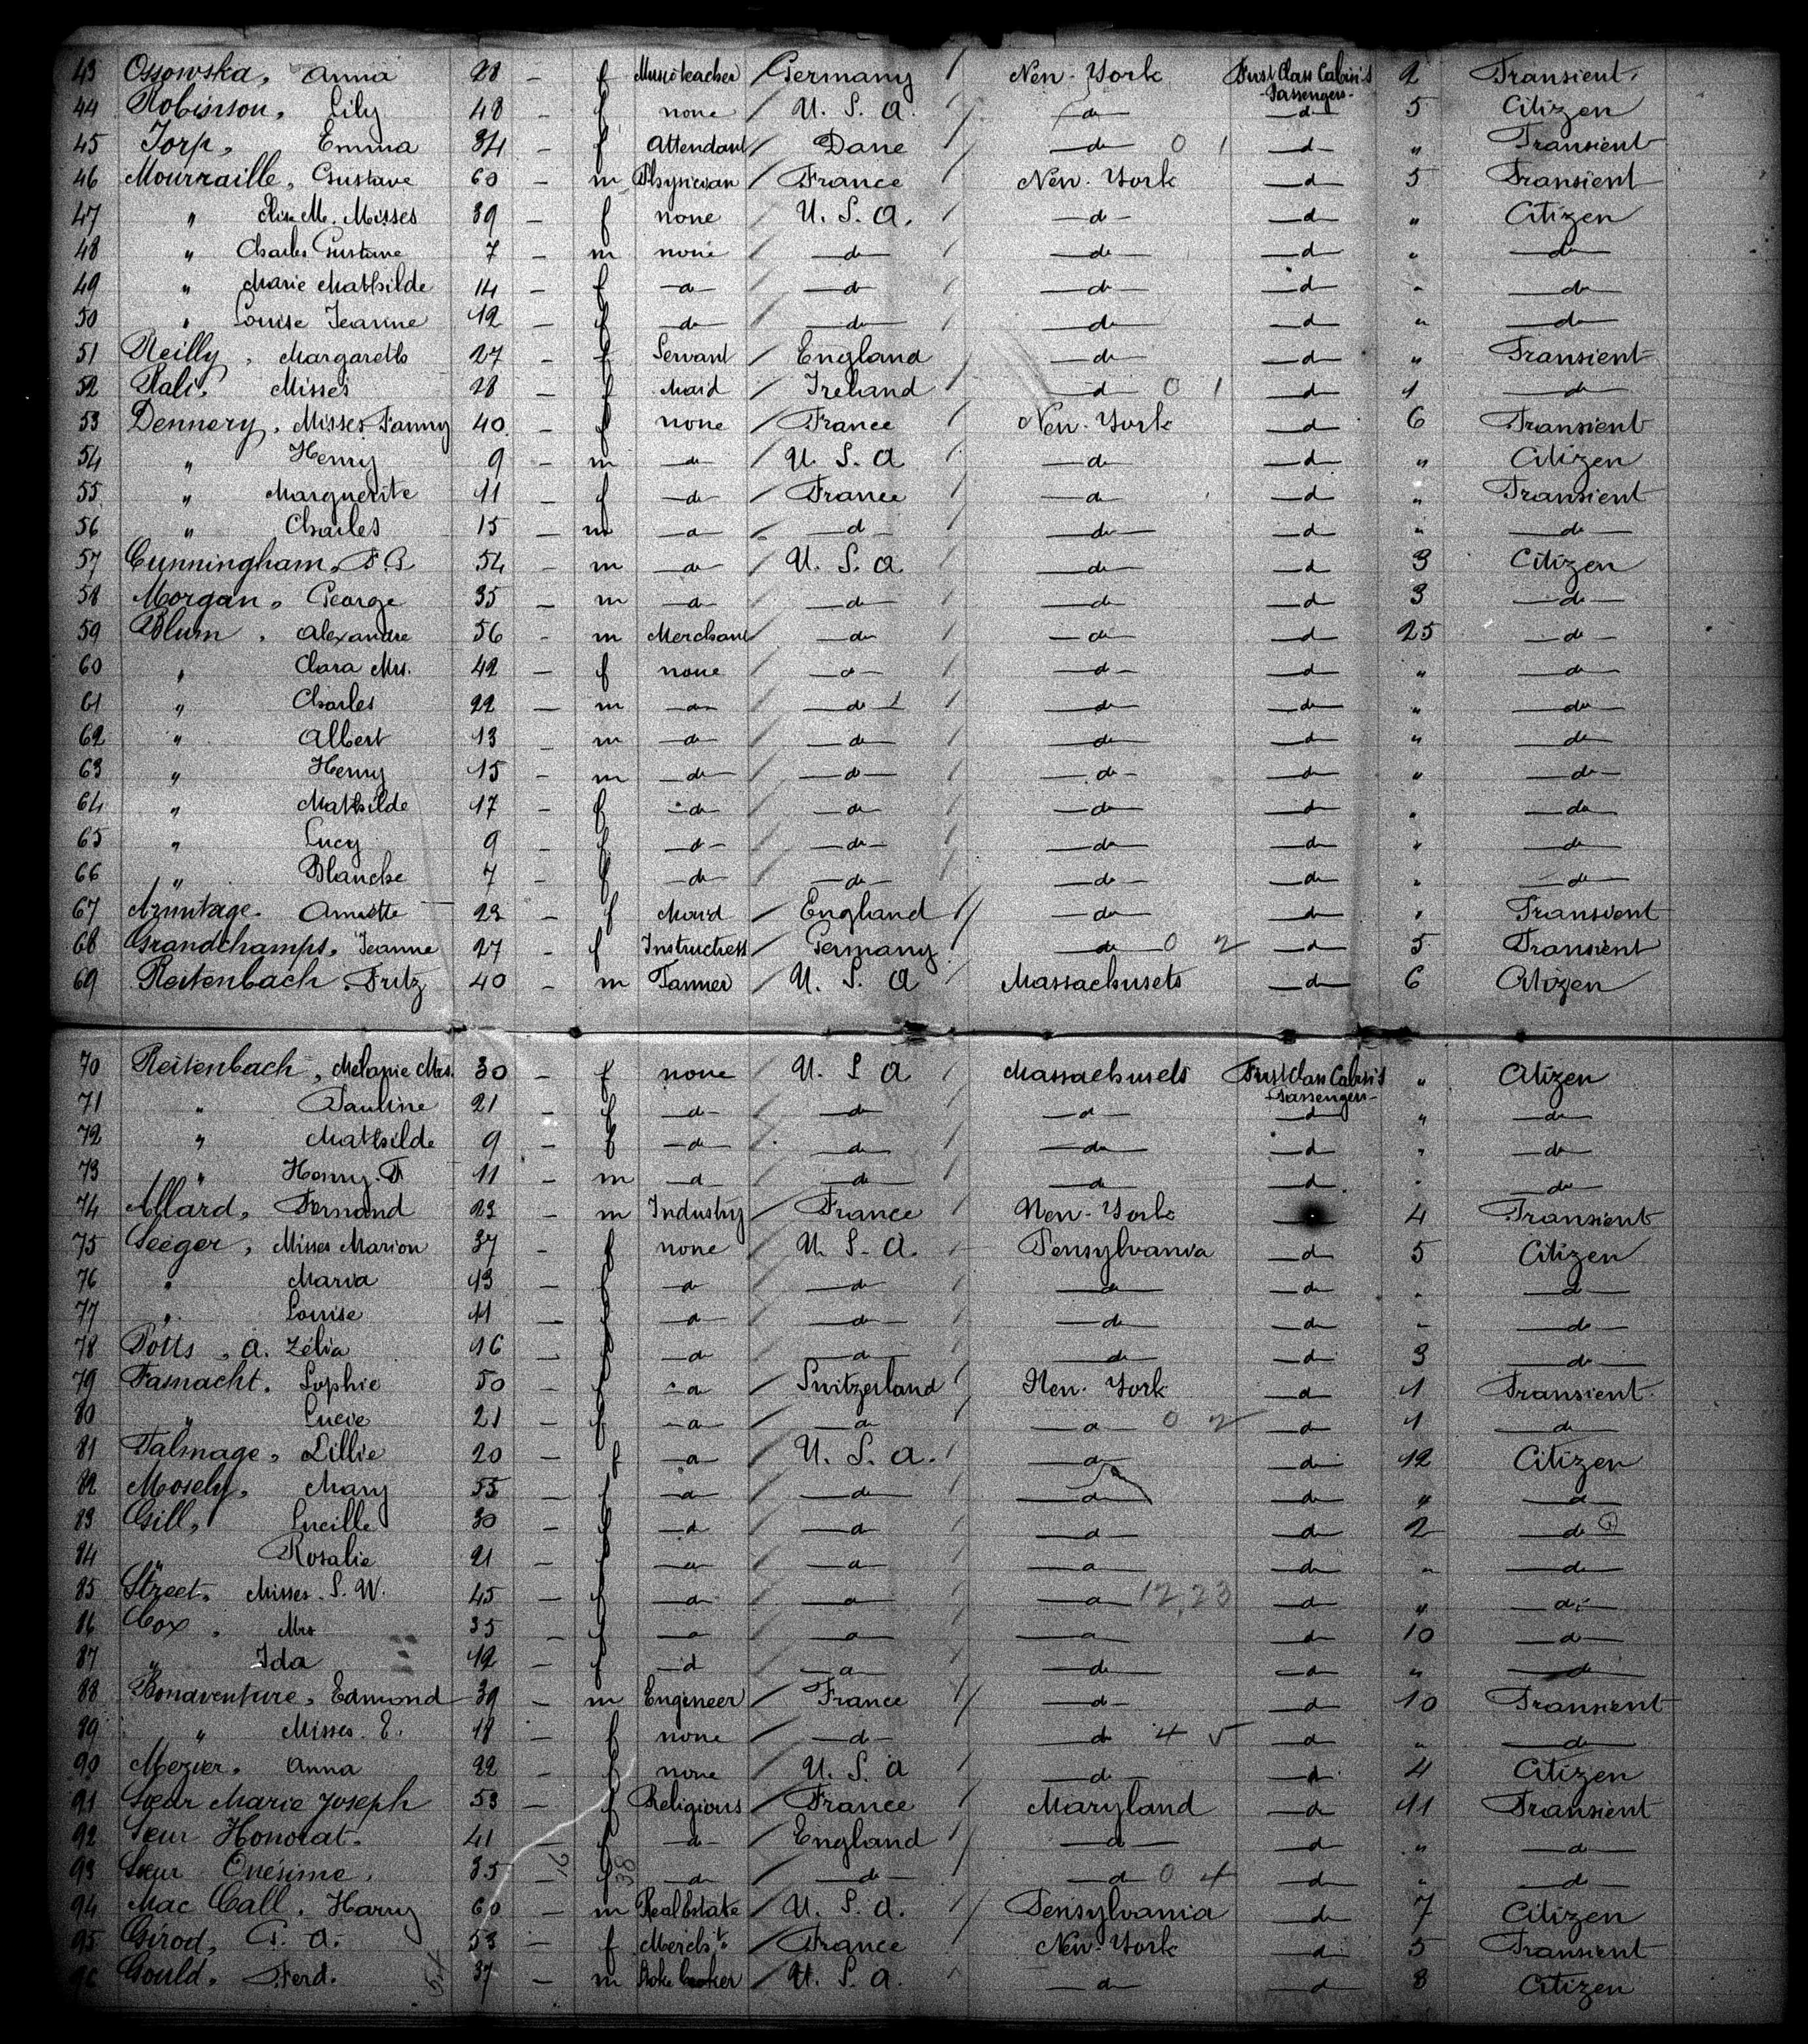 43 Ossowska, Anna 28 — f Musicteacher Germany New-York First Class Cabin's Passengers 2 Transient
44 Robinson, Lily 48 — f none U. S. A. —d— —d— 5 Citizen
45 Torp, Emma 34 — f Attendant Dane —do— 0 1 —d— " Transient
46 Mourraille, Gustave 60 — m Physician France New-York —d— 5 Transient
47 " Elise M. Misses 39 f none U. S. A. —d— —d— " Citizen
48 " Charles Gustave 7 — m none —do— —do— —d— " —do—
49 " Marie Mathilde 14 — f —d— —do— —do— —d— " —do—
50 " Louise Jeanne 12 — f —do— —do— —do— —d— " —do—
51 Reilly, Margareth 27 — f Servant England —do— —d— " Transient
52 Misses 28 f Maid Ireland —d— 0 1 —d— 1 —do—
53 Dennery, Misses Fanny 40 f none France New-York —d— 6 Transient
54 " Henry 9 — m —do— U. S. A —do— —d— " Citizen
55 " Marguerite 11 — f —do— France —d— —d— " Transient
56 " Charles 15 — m —d— —d— —do— —d— " —do—
57 Cunningham, F. B 54 — m —do— U. S. A —do— —d— 3 Citizen
58 Morgan, George 35 — m —d— —do— —do— —d— 3 —do—
59 Blum, Alexandre 56 — m Merchant —do— —do— —d— 25 —do—
60 " Clara Mrs. 42 — f none —d— —d— —d— " —do—
61 " Charles 22 — m —do— —do— —do— —do— " —do—
62 " Albert 13 — m —do— —do— —do— —do— " —do—
63 " Henry 15 — m —do— —d— —d— —do— " —do—
64 " Mathilde 17 — f —d— —do— —do— —do— " —do—
65 " Lucy 9 — f —d— —do— —do— —do— " —do—
66 " Blanche 7 — f —do— —do— —do— —do— " —do—
67 Armitage. Annette 23 — f Maid England —do— —do— " Transient
68 Grandchamps, Jeanne 27 — f Instructress Germany —do— 0 2 —d— 5 Transient
69 Reitenbach, Fritz 40 — m Tanner U. S. A Massachusets —d— 6 Citizen
70 Reitenbach, Mélanie Mrs. 30 — f none U. S A Massachusets First Class Cabin's Passengers " Citizen
71 " Pauline 21 — f —d— —do— —d— —d— " —do—
72 " Mathilde 9 — f —do— —do— —do— —d— " —do—
73 " Henry. F 11 — m —d— —do— —do— —d— " —do—
74 Allard, Fernand 23 — m Industry France New-York 4 Transient
75 Seeger, Misses Marion 37 — f none U. S. A. Pensylvania —d— 5 Citizen
76 " Maria 13 — f —d— —do— —do— —d— " —d—
77 " Louise 11 — f —d— —do— —do— —do— " —do—
78 Potts, A. Zélia 16 — f —d— —do— —do— —d— 3 —do—
79 Fasnacht. Sophie 50 — f —a Switzerland New-York —d— 1 Transient
80 " Lucie 21 — f —a— —do— —a— 0 2 —d— 1 —do—
81 Talmage, Lillie 20 — f —a— U. S. A. —a— —d— 12 Citizen
82 Mosely, Mary 55 — f —a— —do— —a— —do— " —a—
83 Gill, Lucille 30 — f —d— —d— —d— —do— 2 —do—
84 " Rosalie 21 — f —a— —a— —a— —do— " —do—
85 Street. Misses. S. W. 45 — f —a— —a— —a— 12,23 —do— " —d—
86 Cox, Mrs 35 — f —a— —a— —a— —do— 10 —a—
87 " Ida 12 — f —d —a— —do— —do— " —do—
88 Bonaventure, Edmond 39 — m Engineer France —d— —d 10 Transient
89 " Misses. E. 18 — f none —d— —do 4 5 —d— " —do—
90 Mezier. Anna 22 — f none U. S. A —do— —d— 4 Citizen
91 Sœur Marie Joseph 53 — f Religious France Maryland —d— 11 Transient
92 Sœur Honorat. 41 — f —d— England —d— —d— " —do—
93 Sœur Onésime, 35 — f —do— —do— —d 0 4 —d— " —do—
94 Mac Call, Harry 60 — m Real Estate U. S. A. Pensylvania —do— 7 Citizen
95 Girod, A. 53 — f Mercht. France New-York —d— 5 Transient
96 Gould, Ferd. 37 — m U. S. A. —d— —d— 8 Citizen